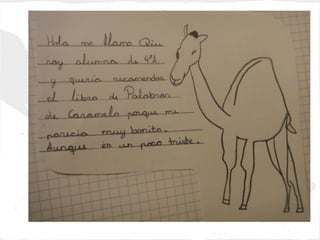 Hola me llamo Qiu
soy alumna de 4ºA
y quería recomendar
el libro de Palabras
de Caramelo porque me
parecia muy bonito.
Aunque es un poco triste.